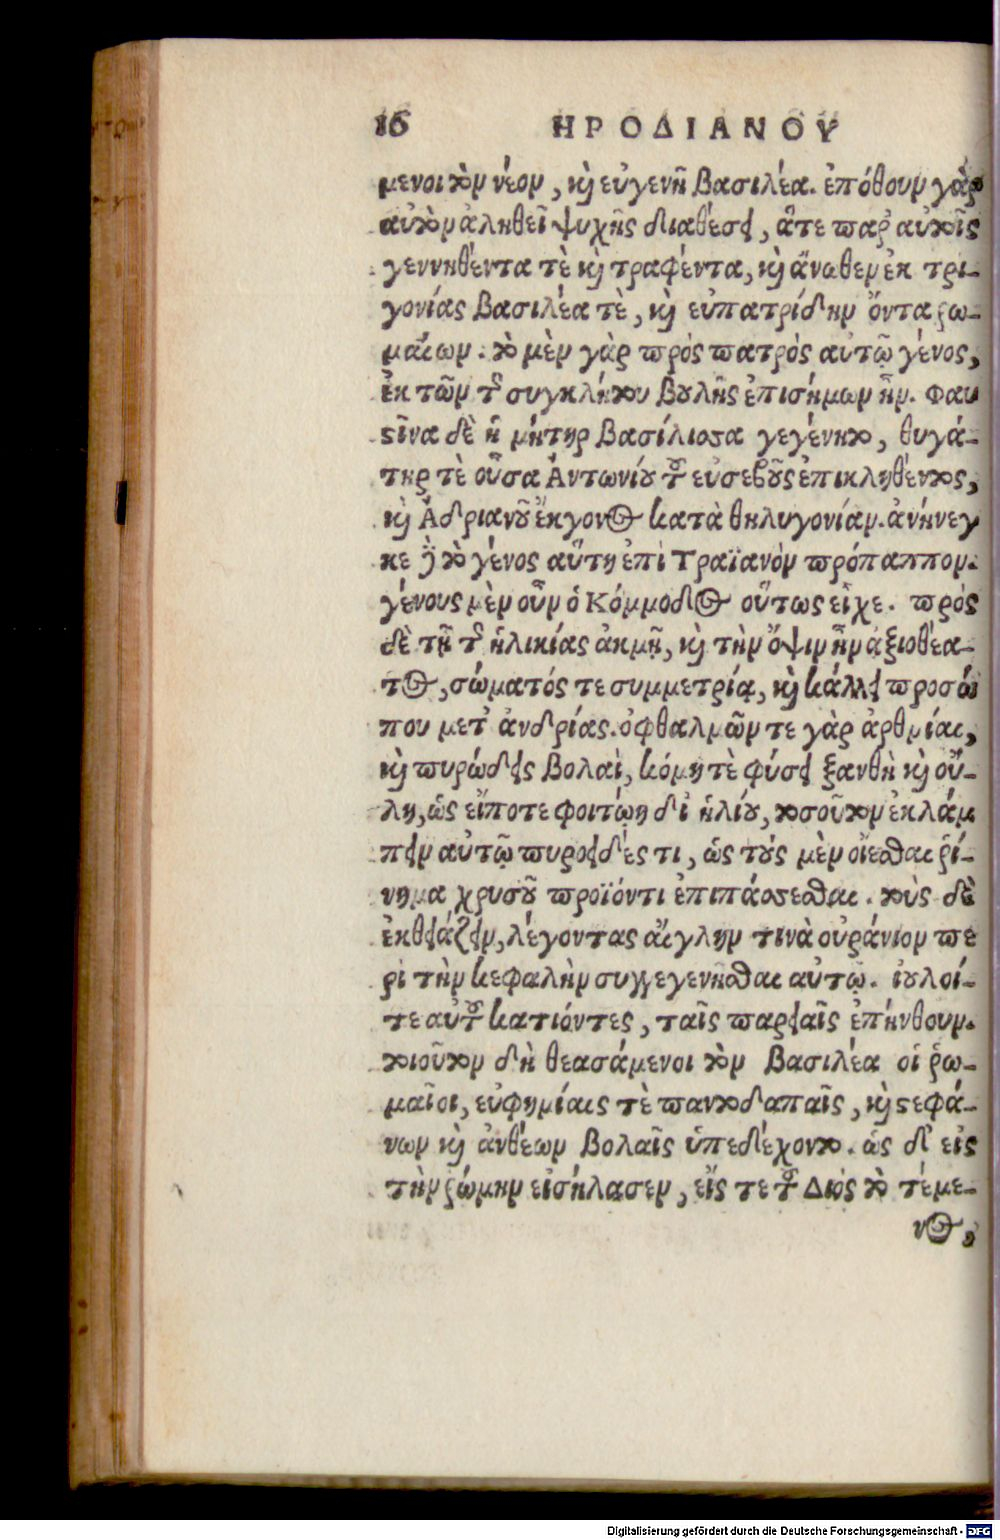 16 ΗΡΟΔΙΑΝΟΥ
μενοι τὸν νέον, καὶ εὐγενῆ βασιλέα. ἐπόθουν γὰρ
αὐτὸν ἀληθεῖ ψυχῆς διαθέσει, ἅτε παρ' αὐτοῖς
γεννηθέντα τὲ καὶ τραφέντα, καὶ ἄνωθεν ἐκ τρι-
γονίας βασιλέα τὲ, καὶ εὐπατρίδην ὄντα ῥω-
μαίων. τὸ μὲν γὰρ πρὸς πατρὸς αὐτῷ γένος,
ἐκ τῶν τῆς συγκλήτου βουλῆς ἐπισήμων ἦν. Φαυ
στῖνα δὲ ἡ μήτηρ βασίλισσα γεγένητο, θυγά-
τηρ τὲ οὖσα Ἀντωνίου τοῦ εὐσεβοῦς ἐπικληθέντος,
καὶ Ἀδριανοῦ ἔκγονος κατὰ θηλυγονίαν. ἀνήνεγ
κε δὲ τὸ γένος αὕτη ἐπὶ Τραϊανὸν πρόπαππον.
γένους μὲν οὖν ὁ Κόμμοδος οὕτως εἶχε. πρὸς
δὲ τῇ τῆς ἡλικίας ἀκμῇ, καὶ τὴν ὄψιν ἦν ἀξιοθέα-
τος, σώματός τε συμμετρίᾳ, καὶ κάλλει προσώ
που μετ' ἀνδρίας. ὀφθαλμῶν τε γὰρ ἀρθμίαι,
καὶ πυρώδεις βολαὶ, κόμη τὲ φύσει ξανθὴ καὶ οὔ-
λη, ὡς εἴποτε φοιτῴη δι' ἡλίου, τοσοῦτον ἐκλάμ
πειν αὐτῷ πυροειδές τι, ὡς τοὺς μὲν οἴεσθαι ῥί-
νημα χρυσοῦ προϊόντι ἐπιπάσσεσθαι. τοὺς δὲ
ἐκθειάζειν, λέγοντας αἴγλην τινὰ οὐράνιον πε
ρὶ τὴν κεφαλὴν συγγεγενῆσθαι αὐτῷ. ἰουλοί-
τε αὐτοῦ κατιόντες, ταῖς παρειαῖς ἐπήνθουν.
τοιοῦτον δὴ θεασάμενοι τὸν βασιλέα οἱ ῥω-
μαῖοι, εὐφημίαις τὲ παντοδαπαῖς, καὶ στεφά-
νων καὶ ἀνθέων βολαῖς ὑπεδέχοντο. ὡς δ' εἰς
τὴν ῥώμην εἰσήλασεν, εἴς τε τοῦ Διὸς τὸ τέμε-
νος,
Digitalisierung gefördert durch die Deutsche Forschungsgemeinschaft - DFG